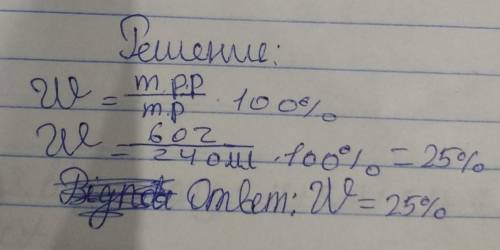 Решение:
W = m.р.р / m.р · 100%
W = 60г / 240мл · 100% = 25%
Ответ: W = 25%